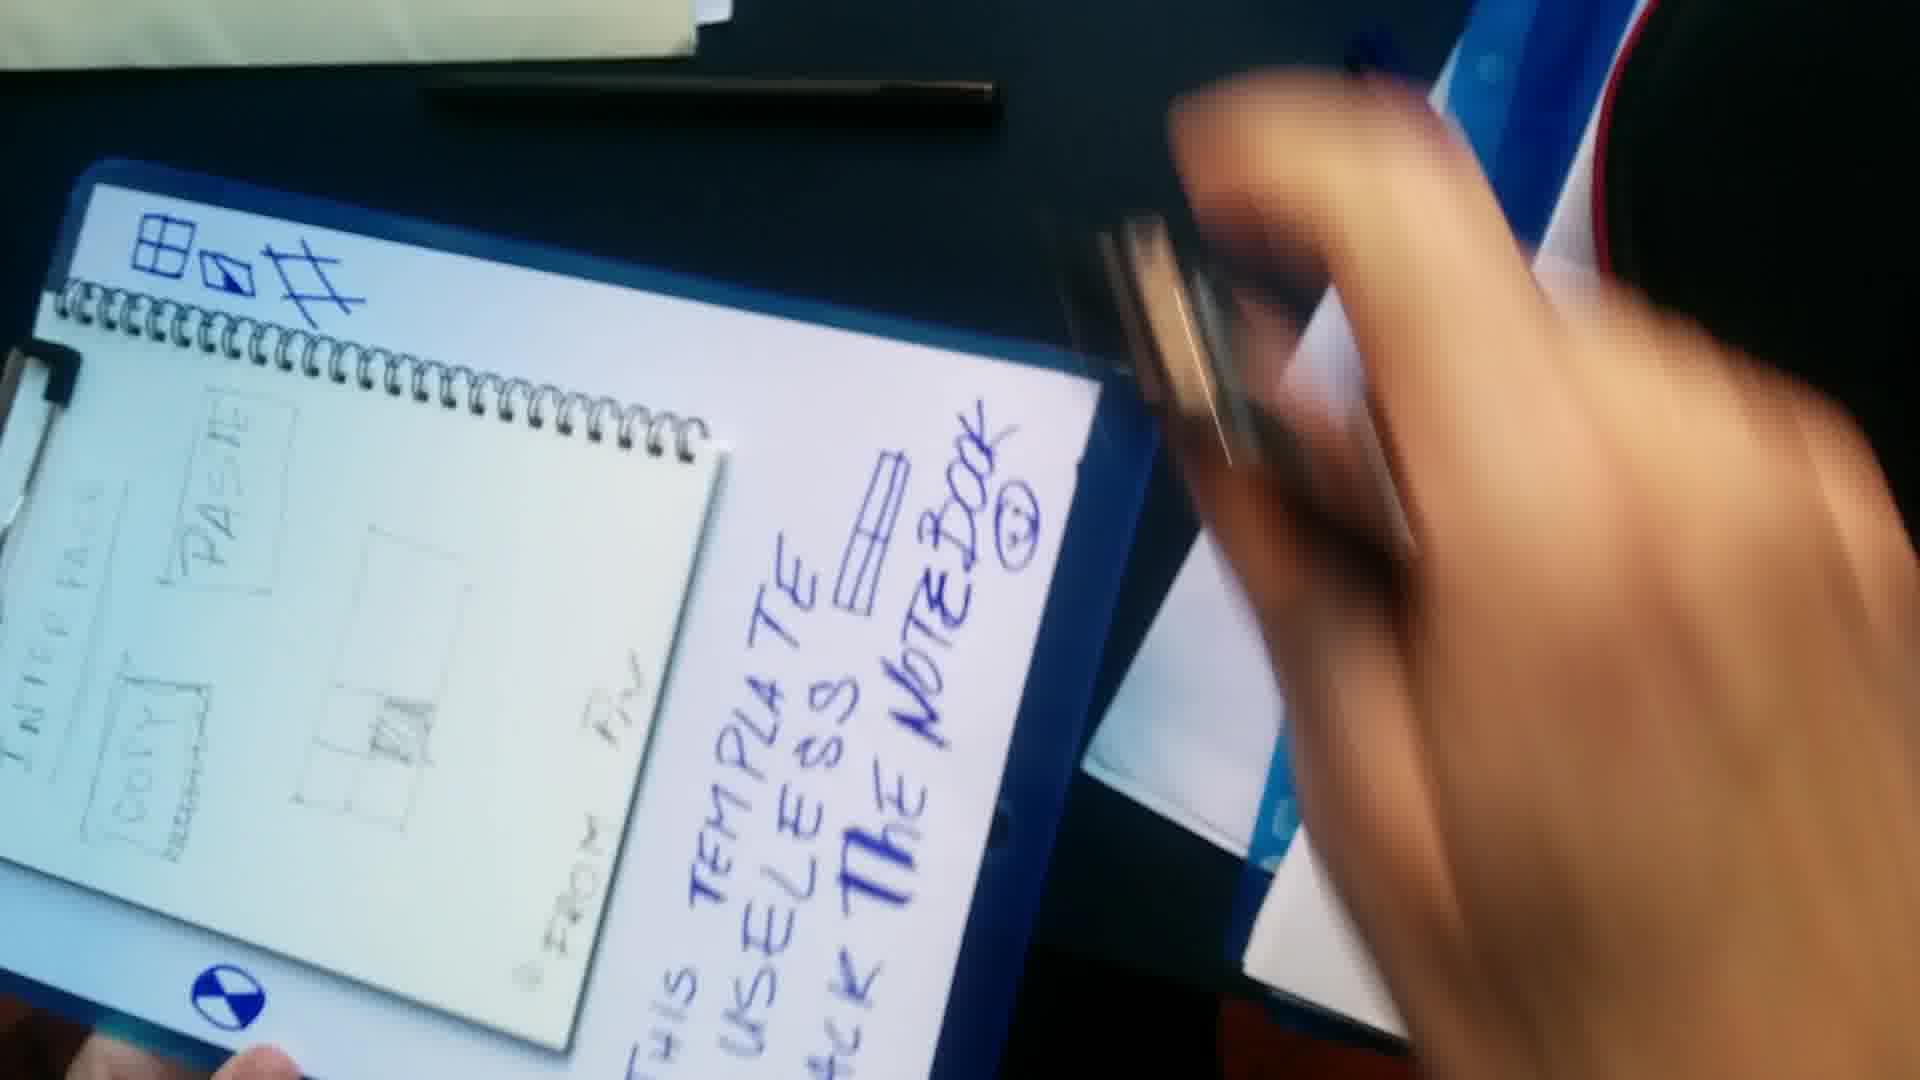 INTERFACE
COPY PASTE
FROM
THIS TEMPLATE
USELESS
ACK THE NOTEBOOK